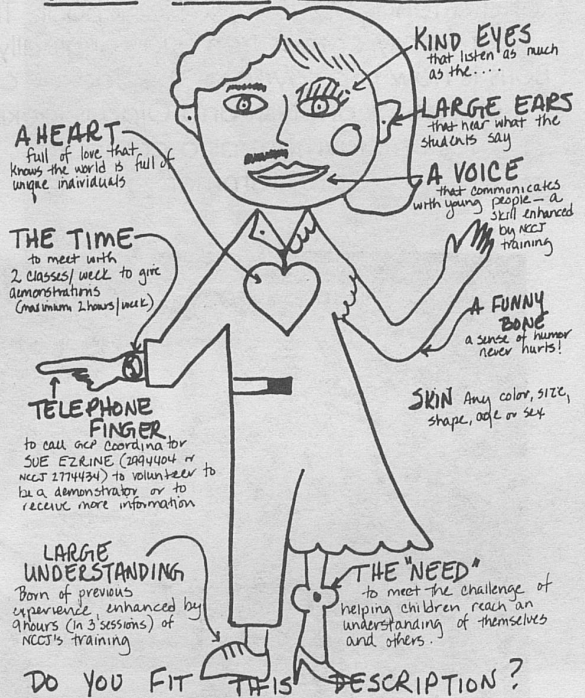 KIND EYES
that listen as much
as the....
LARGE EARS
that hear what the
students say
A HEART
full of love that
knows the world is full of
unique individuals
A VOICE
that communicates
with young people - a
skill enhanced
by NCCJ
training
THE TIME
to meet with
2 classes/week to give
demonstrations
(maximum 2 hours/week)
A FUNNY
BONE
a sense of humor
never hurts!
SKIN Any color, size,
shape, age or sex
TELEPHONE
FINGER
to call GCP coordinator
SUE EZRINE (2994404 or
NCCJ 2774434) to volunteer to
be a demonstrator or to
receive more information
LARGE
UNDERSTANDING
Born of previous
experience, enhanced by
9 hours (in 3 sessions) of
NCCJ's training
THE "NEED"
to meet the challenge of
helping children reach an
understanding of themselves
and others.
DO YOU FIT THIS DESCRIPTION?